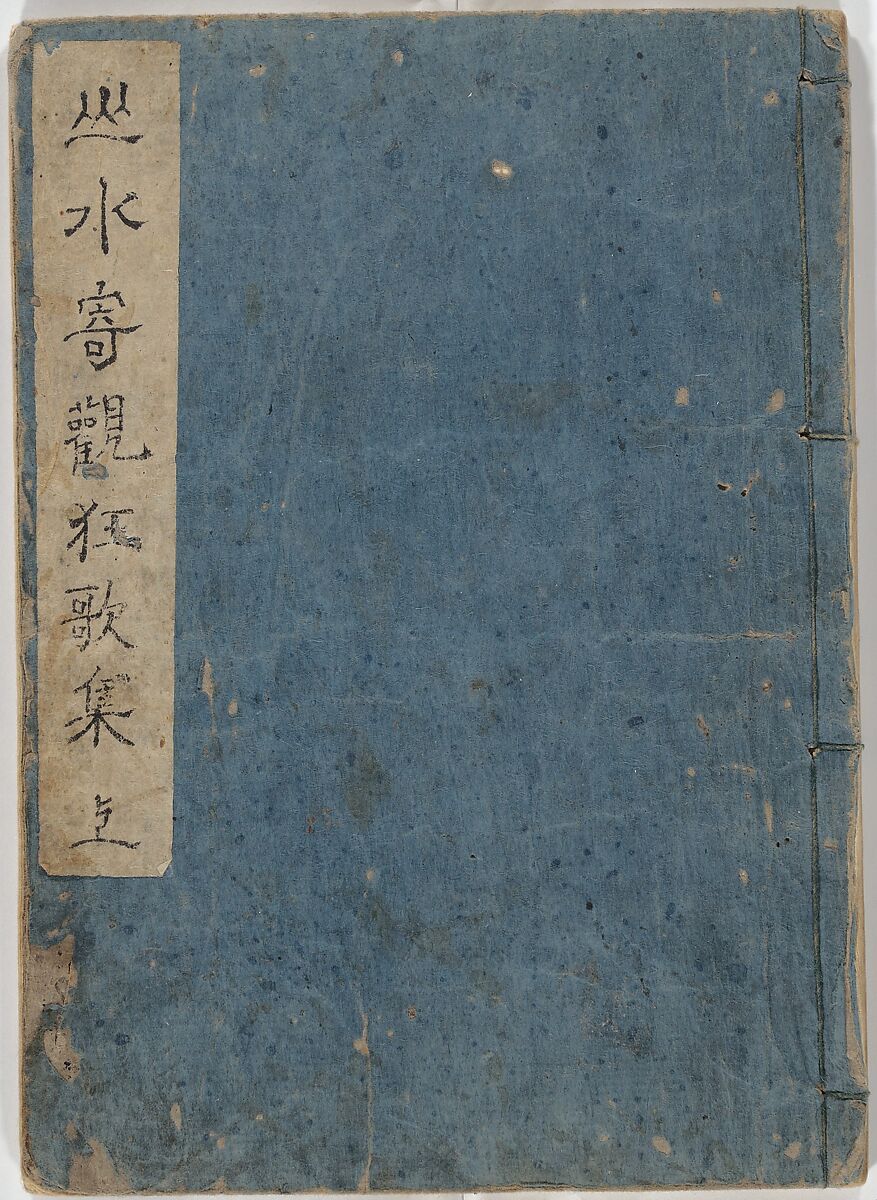 山水寄觀狂歌集 上